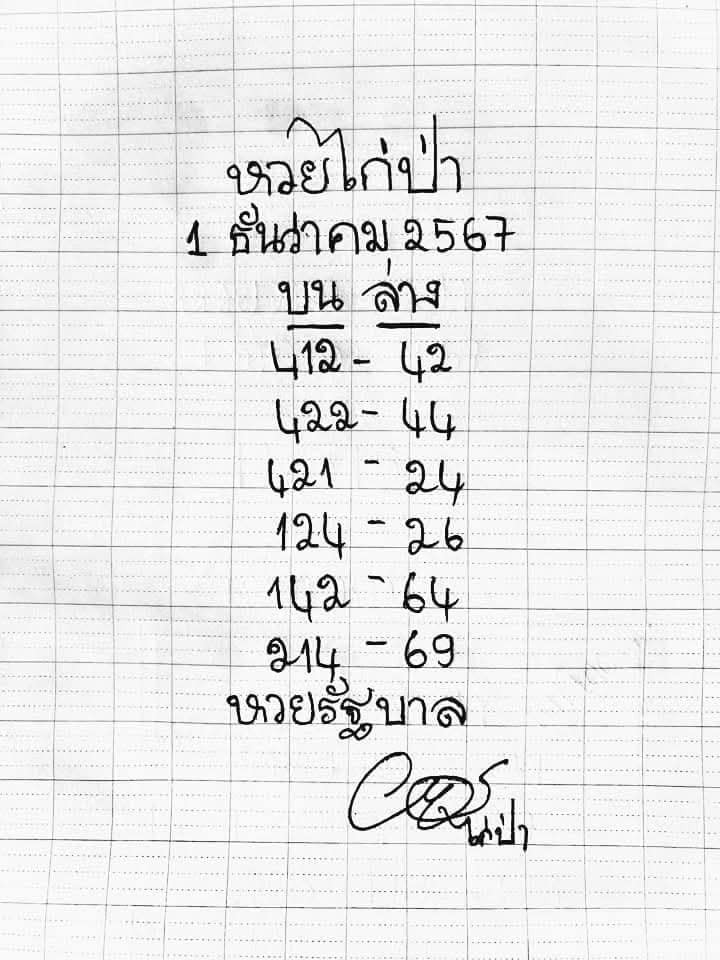 หวยไก่ป่า
1 ธันวาคม 2567
บน ล่าง
412 - 42
422 - 44
421 - 24
124 - 26
142 - 64
214 - 69
หวยรัฐบาล